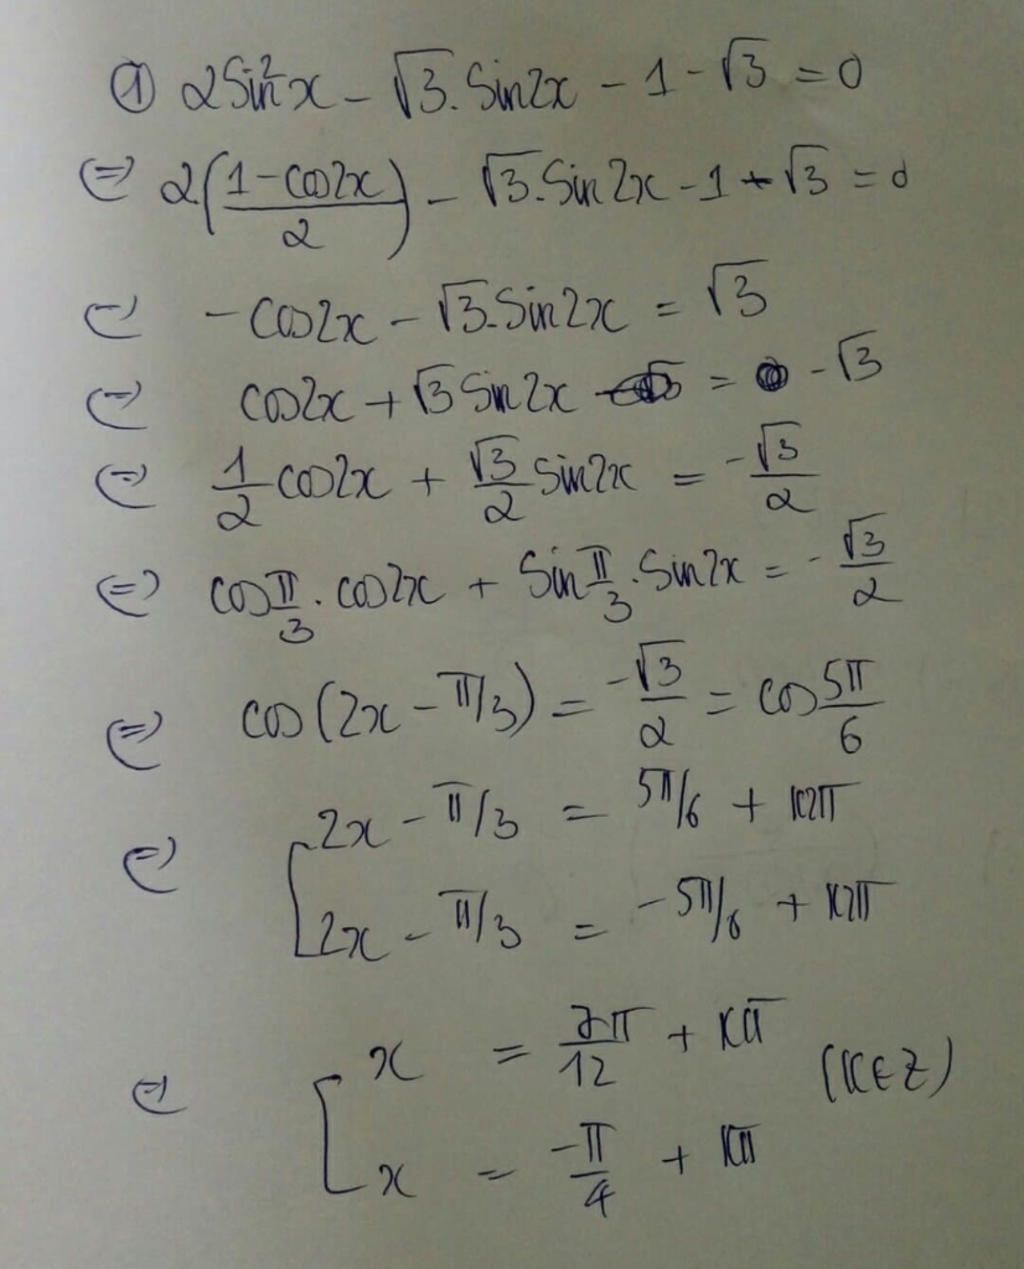 ① 2Sin²x - √3.Sin2x - 1 - √3 = 0
⇔ 2(1-cos2x/2) - √3.Sin2x - 1 + √3 = 0
⇔ -cos2x - √3.Sin2x = √3
⇔ cos2x + √3 Sin2x = -√3
⇔ 1/2 cos2x + √3/2 Sin2x = -√3/2
⇔ cos π/3 . cos2x + Sin π/3 . Sin2x = -√3/2
⇔ cos(2x - π/3) = -√3/2 = cos 5π/6
⇔ [ 2x - π/3 = 5π/6 + k2π
2x - π/3 = -5π/6 + k2π
⇔ [ x = 7π/12 + kπ (k∈Z)
x = -π/4 + kπ